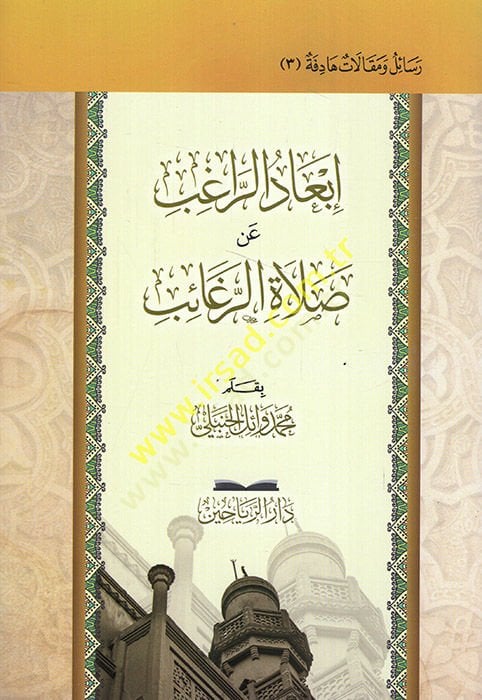 رَسَائِلُ وَمَقَالَاتٌ هَادِفَةٌ (٣)
إِبْعَادُ الرَّاغِبِ
عَن
صَلَاةِ الرَّغَائِبِ
بِقَلَم
مُحَمَّد وَائِل الحَنْبَلِيّ
دَارُ الرَّيَاحِين
www.irsad.com.tr